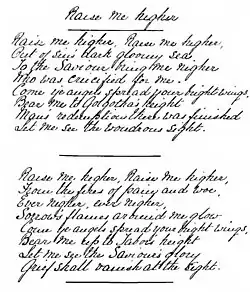 Raise me higher
Raise me higher, Raise me higher,
Out of sin's dark gloomy sea.
To the Saviour bring me nigher
Who was crucified for me.
Come ye angels spread your bright wings,
Bear me to Golgotha's height
Man's redemption there was finished
Let me see the wondrous sight.
Raise me, higher, Raise me higher,
From the fires of pain and woe,
Ever nigher, ever nigher,
Sorrow's flames around me glow
Come ye angels spread your bright wings,
Bear me up to Tabor's height
Let me see the Saviour's glory
Grief shall vanish at the sight.